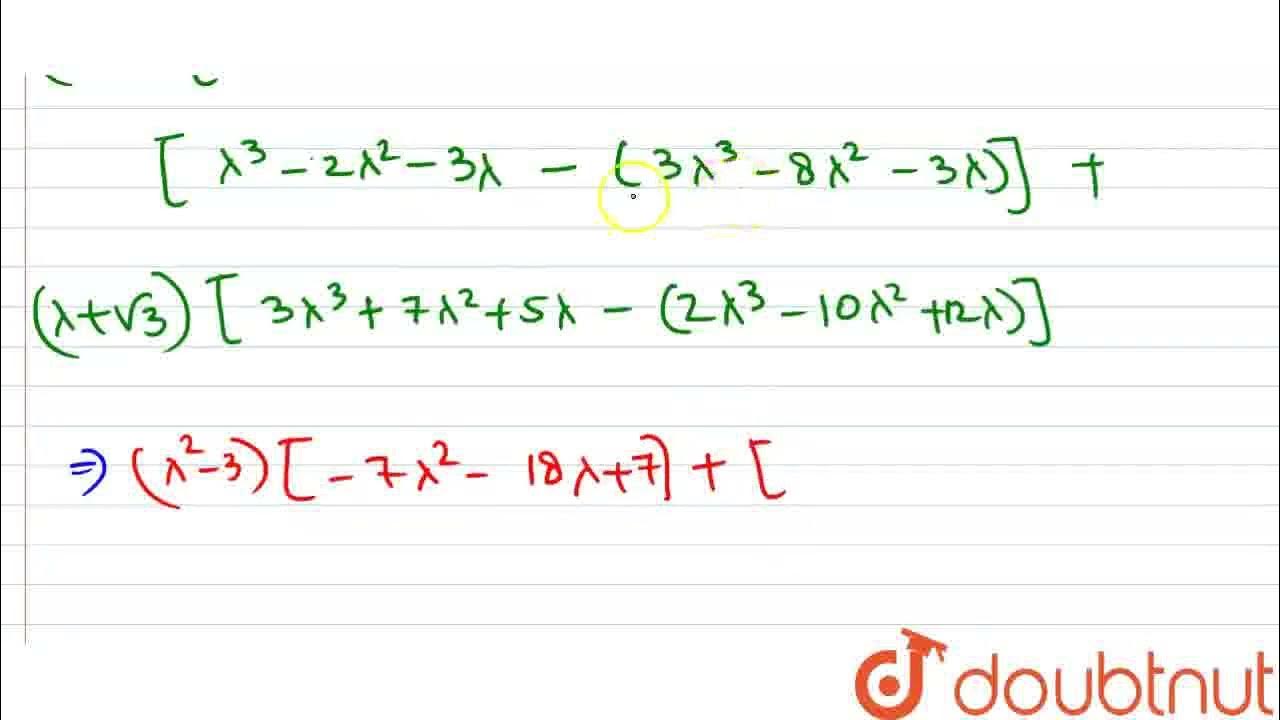 [ λ³ - 2λ² - 3λ - (3λ³ - 8λ² - 3λ)] +
(λ+√3) [ 3λ³ + 7λ² + 5λ - (2λ³ - 10λ² + 12λ)]
⇒ (λ² - 3) [ - 7λ² - 18λ + 7] + [
doubtnut